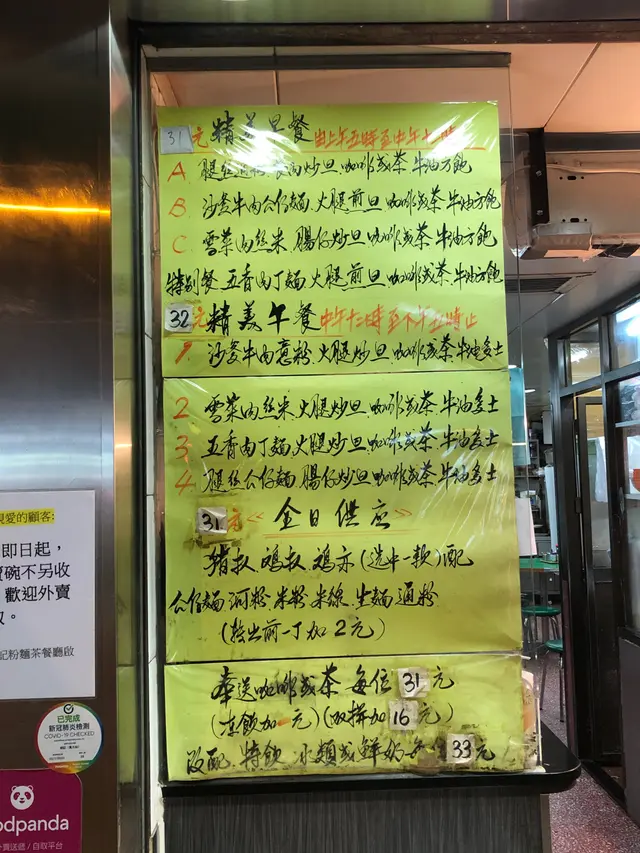 31元 精美早餐 由上午五時至中午十一時
A. 腿 肉炒旦.咖啡或茶.牛油方飽
B. 沙爹牛肉公仔麵.火腿煎旦.咖啡或茶.牛油方飽
C. 雪菜肉丝米.腸仔炒旦.咖啡或茶.牛油方飽
特别餐 五香肉丁麵.火腿煎旦.咖啡或茶.牛油方飽
32元 精美午餐 中午十一時至下午五時止
1. 沙爹牛肉意粉.火腿炒旦.咖啡或茶.牛油多士
2 雪菜肉丝米.火腿炒旦.咖啡或茶.牛油多士
3 五香肉丁麵.火腿炒旦.咖啡或茶.牛油多士
4. 腿丝公仔麵.腸仔炒旦.咖啡或茶.牛油多士
31元 《全日供应》
猪扒 鸡扒 鸡亦(选中一款)配
公仔麵.河粉.米粉.米線.生麵.通粉
(转出前一丁加2元)
奉送咖啡或茶 每位31元
(冻飲加 元)(双拼加16元)
改配.特飲 冰類或鮮奶 33元
親愛的顧客:
即日起,
碗不另收
歡迎外賣
記粉麵茶餐廳啟
已完成
新冠肺炎檢測
COVID-19 CHECKED
odpanda
外賣速遞 / 自取平台